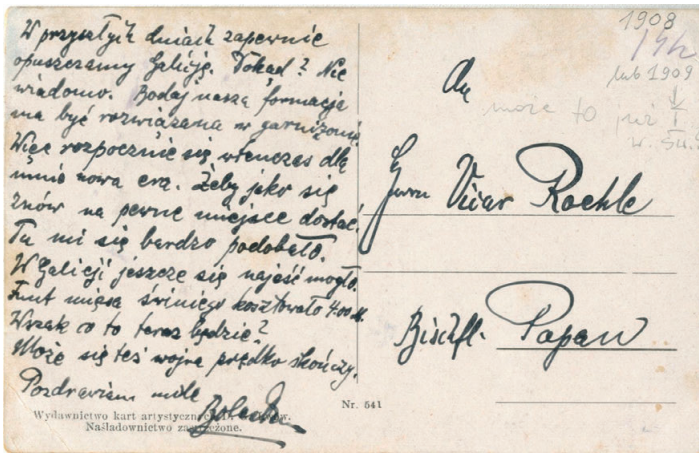 W przyszłych dniach zapewnie
opuszczamy Galicję. Dokąd? Nie
wiadomo. Bodaj nasza formacja
ma być rozwiązana w garnizonie.
Więc rozpocznie się wtenczas dla
mnie nowa era. Żeby jako się
znów na pewne miejsce dostać.
Tu mi się bardzo podobało.
W Galicji jeszcze się najeść mogło.
Funt mięsa świniego kosztowało 4.00 M.
Wszak co to teraz będzie?
Może się też wojna prędko skończy.
Pozdrawiam mile
Wydawnictwo kart artystycznych
Naśladownictwo zastrzeżone.
Nr. 541
1908
lub 1909
może to już I
w. św.
Herrn Vicar Roehle
Bischfl. Papau